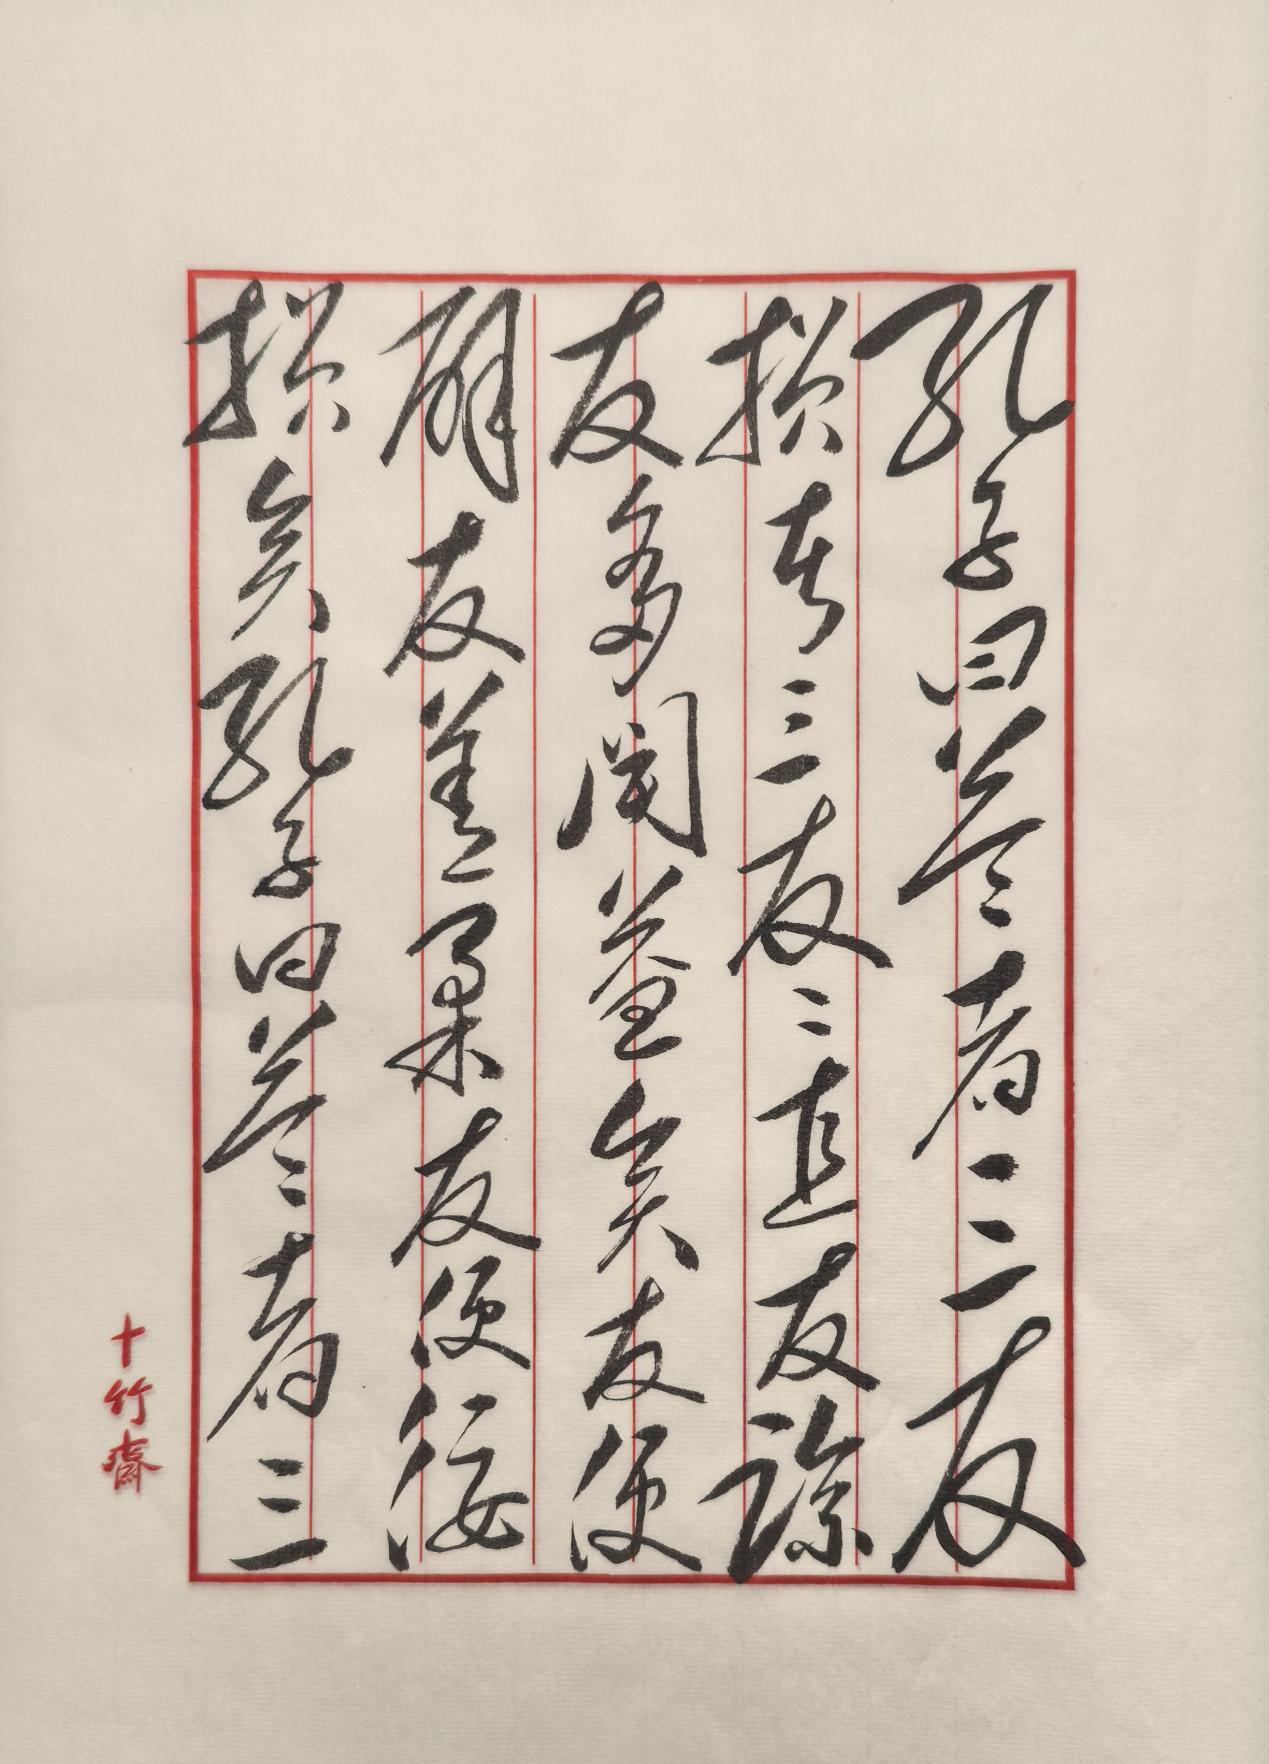 孔子曰益者三友
損者三友〻直友諒
友多聞益矣友便
辟友善柔友便佞
損矣孔子曰益者三
十竹齋